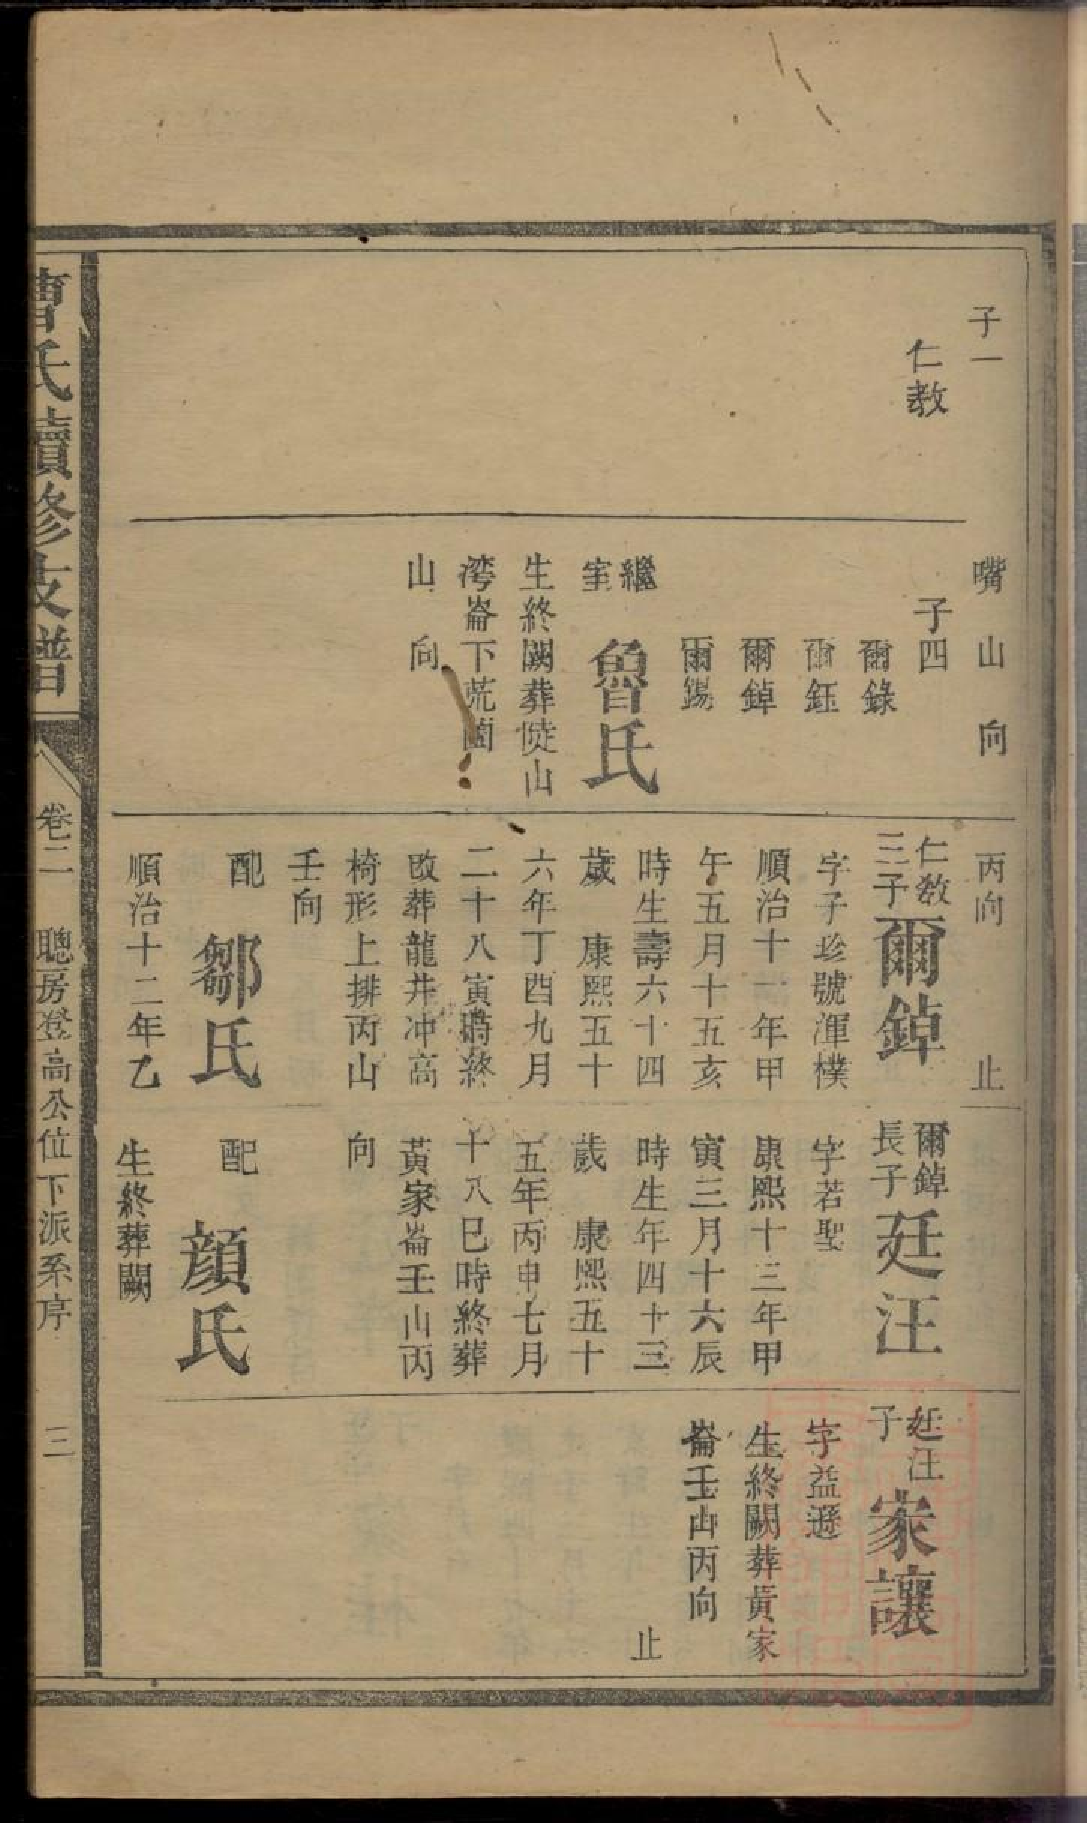 子一
仁教
嘴山向
子四
爾錄
爾鈺
爾錞
爾錫
繼室
魯氏
生終闕葬陡山
湾崙下荒園
山向
丙向 止
仁教
三子
爾錞
字子珍號渾樸
順治十一年甲
午五月十五亥
時生壽六十四
歲 康熙五十
六年丁酉九月
二十八寅時終
改葬龍井冲高
椅形上排丙山
壬向
配
鄒氏
順治十二年乙
爾錞
長子
廷汪
字若聖
康熙十三年甲
寅三月十六辰
時生年四十三
歲 康熙五十
五年丙申七月
十八巳時終葬
黃家崙壬山丙
向
配
顏氏
生終葬闕
廷汪
子
家讓
字益遜
生終闕葬黃家
崙壬山丙向
止
曹氏續修支譜
卷二 聰房登高公位下派系序 三